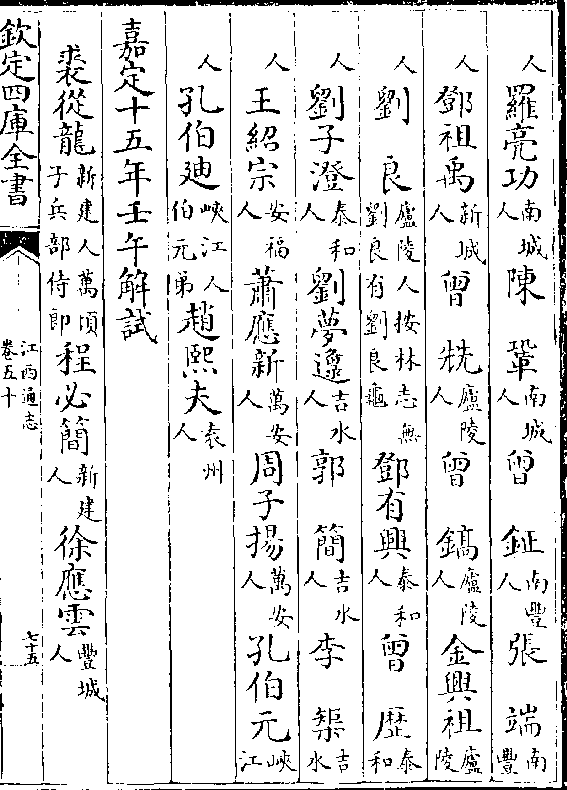 人 羅亮功南城人 陳 鞏南城人 曾 鉦南豐人 張 端南豐
人 鄧祖禹新城人 曾 兟廬陵人 曾 鎬廬陵人 金興祖廬陵
人 劉 良廬陵人按林志無劉良有劉良龜 鄧有興泰和人 曾 歴泰和
人 劉子澄泰和人 劉夢吉水人 郭 簡吉水人 李 榘吉水
人 王紹宗安福人 蕭應新萬安人 周子揚萬安人 孔伯元峽江
人 孔伯廸峽江人伯元弟 趙熙夫袁州人
嘉定十五年壬午解試
裘從龍新建人萬頃子兵部侍郎 程必簡新建人 徐應雲豐城人
欽定四庫全書
江西通志
卷五十
七十五